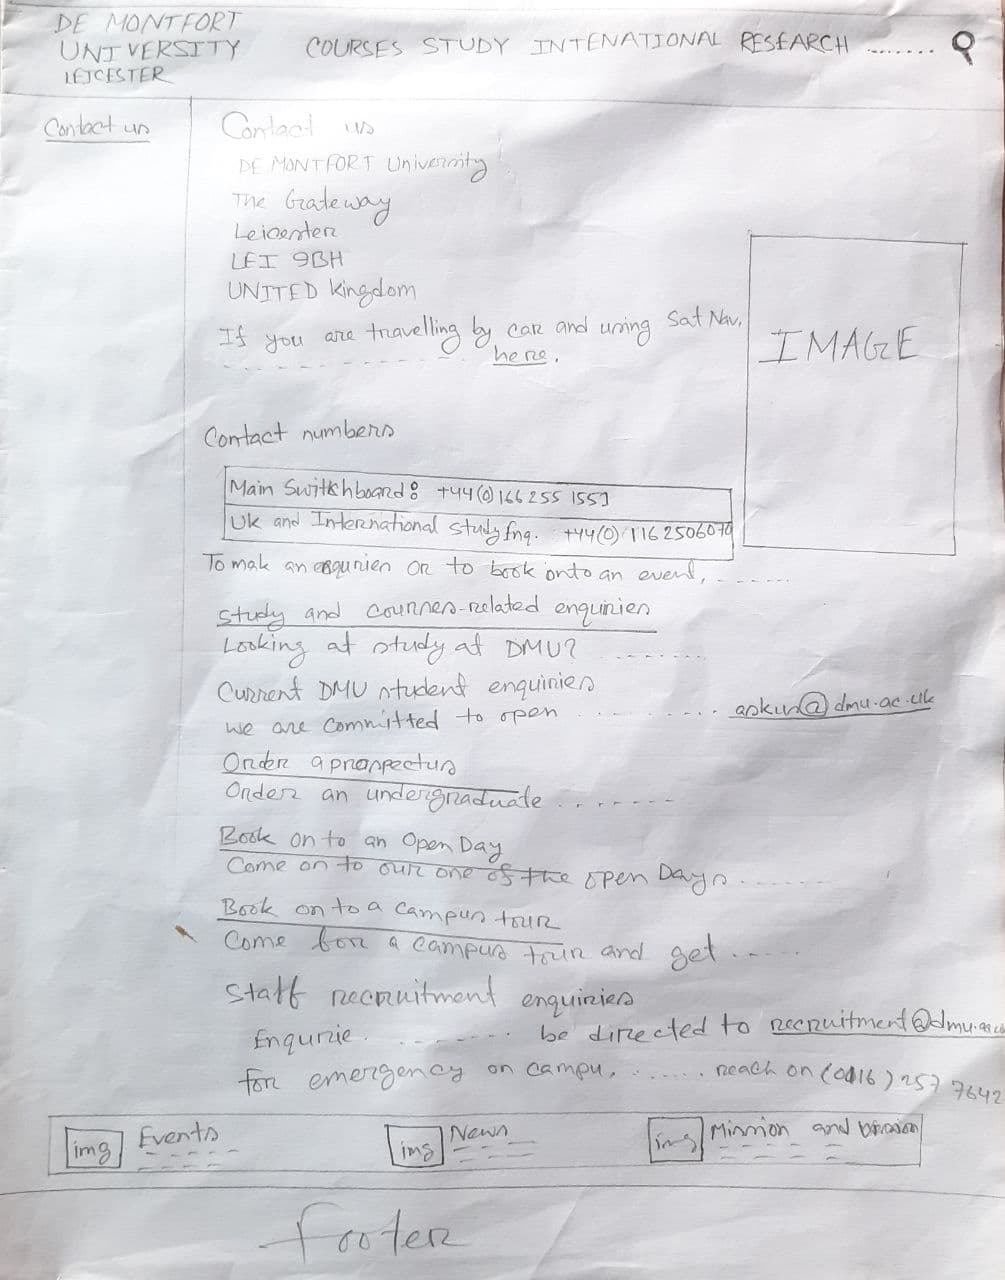 DE MONTFORT
UNIVERSITY
LEICESTER
COURSES STUDY INTENATIONAL RESEARCH ........
Contact us
Contact us
DE MONTFORT University
The Gateway
Leicester
LEI 9BH
UNITED Kingdom
If you are travelling by car and using Sat Nav,
here.
IMAGE
Contact numbers
Main Switchboard: +44(0)166 255 1551
Uk and International study Enq. +44(0) 116 2506079
To mak an enquries or to book onto an event, ......
Study and courses-related enquiries
Looking at study at DMU? ........
Current DMU student enquiries
we are committed to open ........ askus@dmu.ac.uk
Order a prospectus
Order an undergraduate ........
Book on to an Open Day
Come on to our one of the open Days ......
Book on to a campus tour
Come for a campus tour and get .....
Staff recruitment enquiries
Enqurie ........ be directed to recruitment@dmu.ac
for emergency on campu, ...... reach on (0116) 257 7642
img Events
img News
img Mission and
Footer